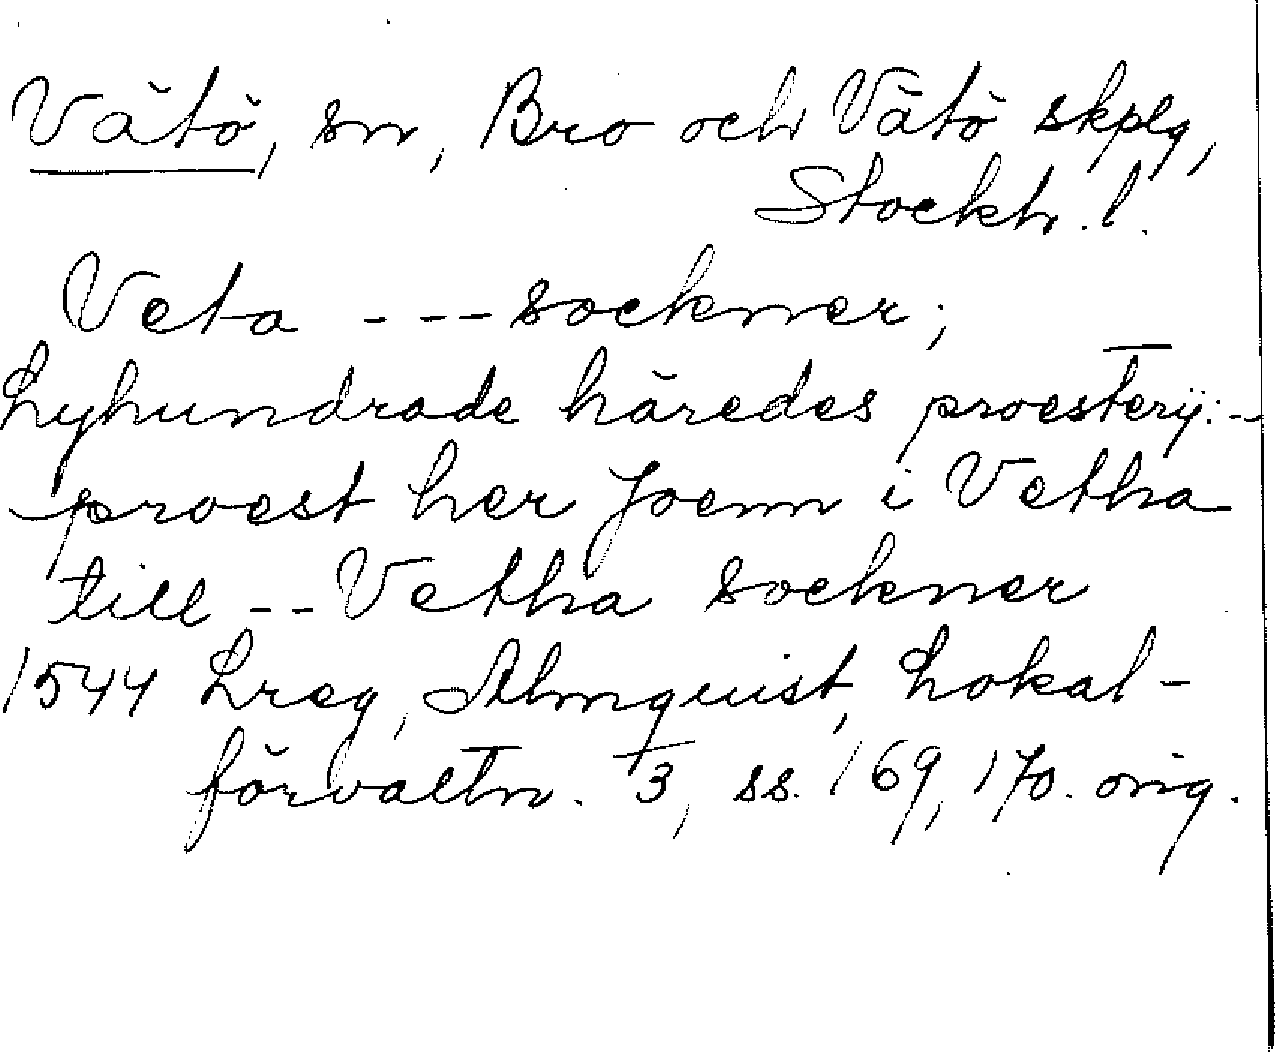 Vätö, sn, Bro och Vätö skplg,
Stockh. l.
Veta --- sockner;
Lyhundrade häredes proesterij:-
proest her Joenn i Vetha
till -- Vetha sockner
1544 Lreg, Almquist, Lokal-
förvaltn. 3, ss. 169, 170. orig.